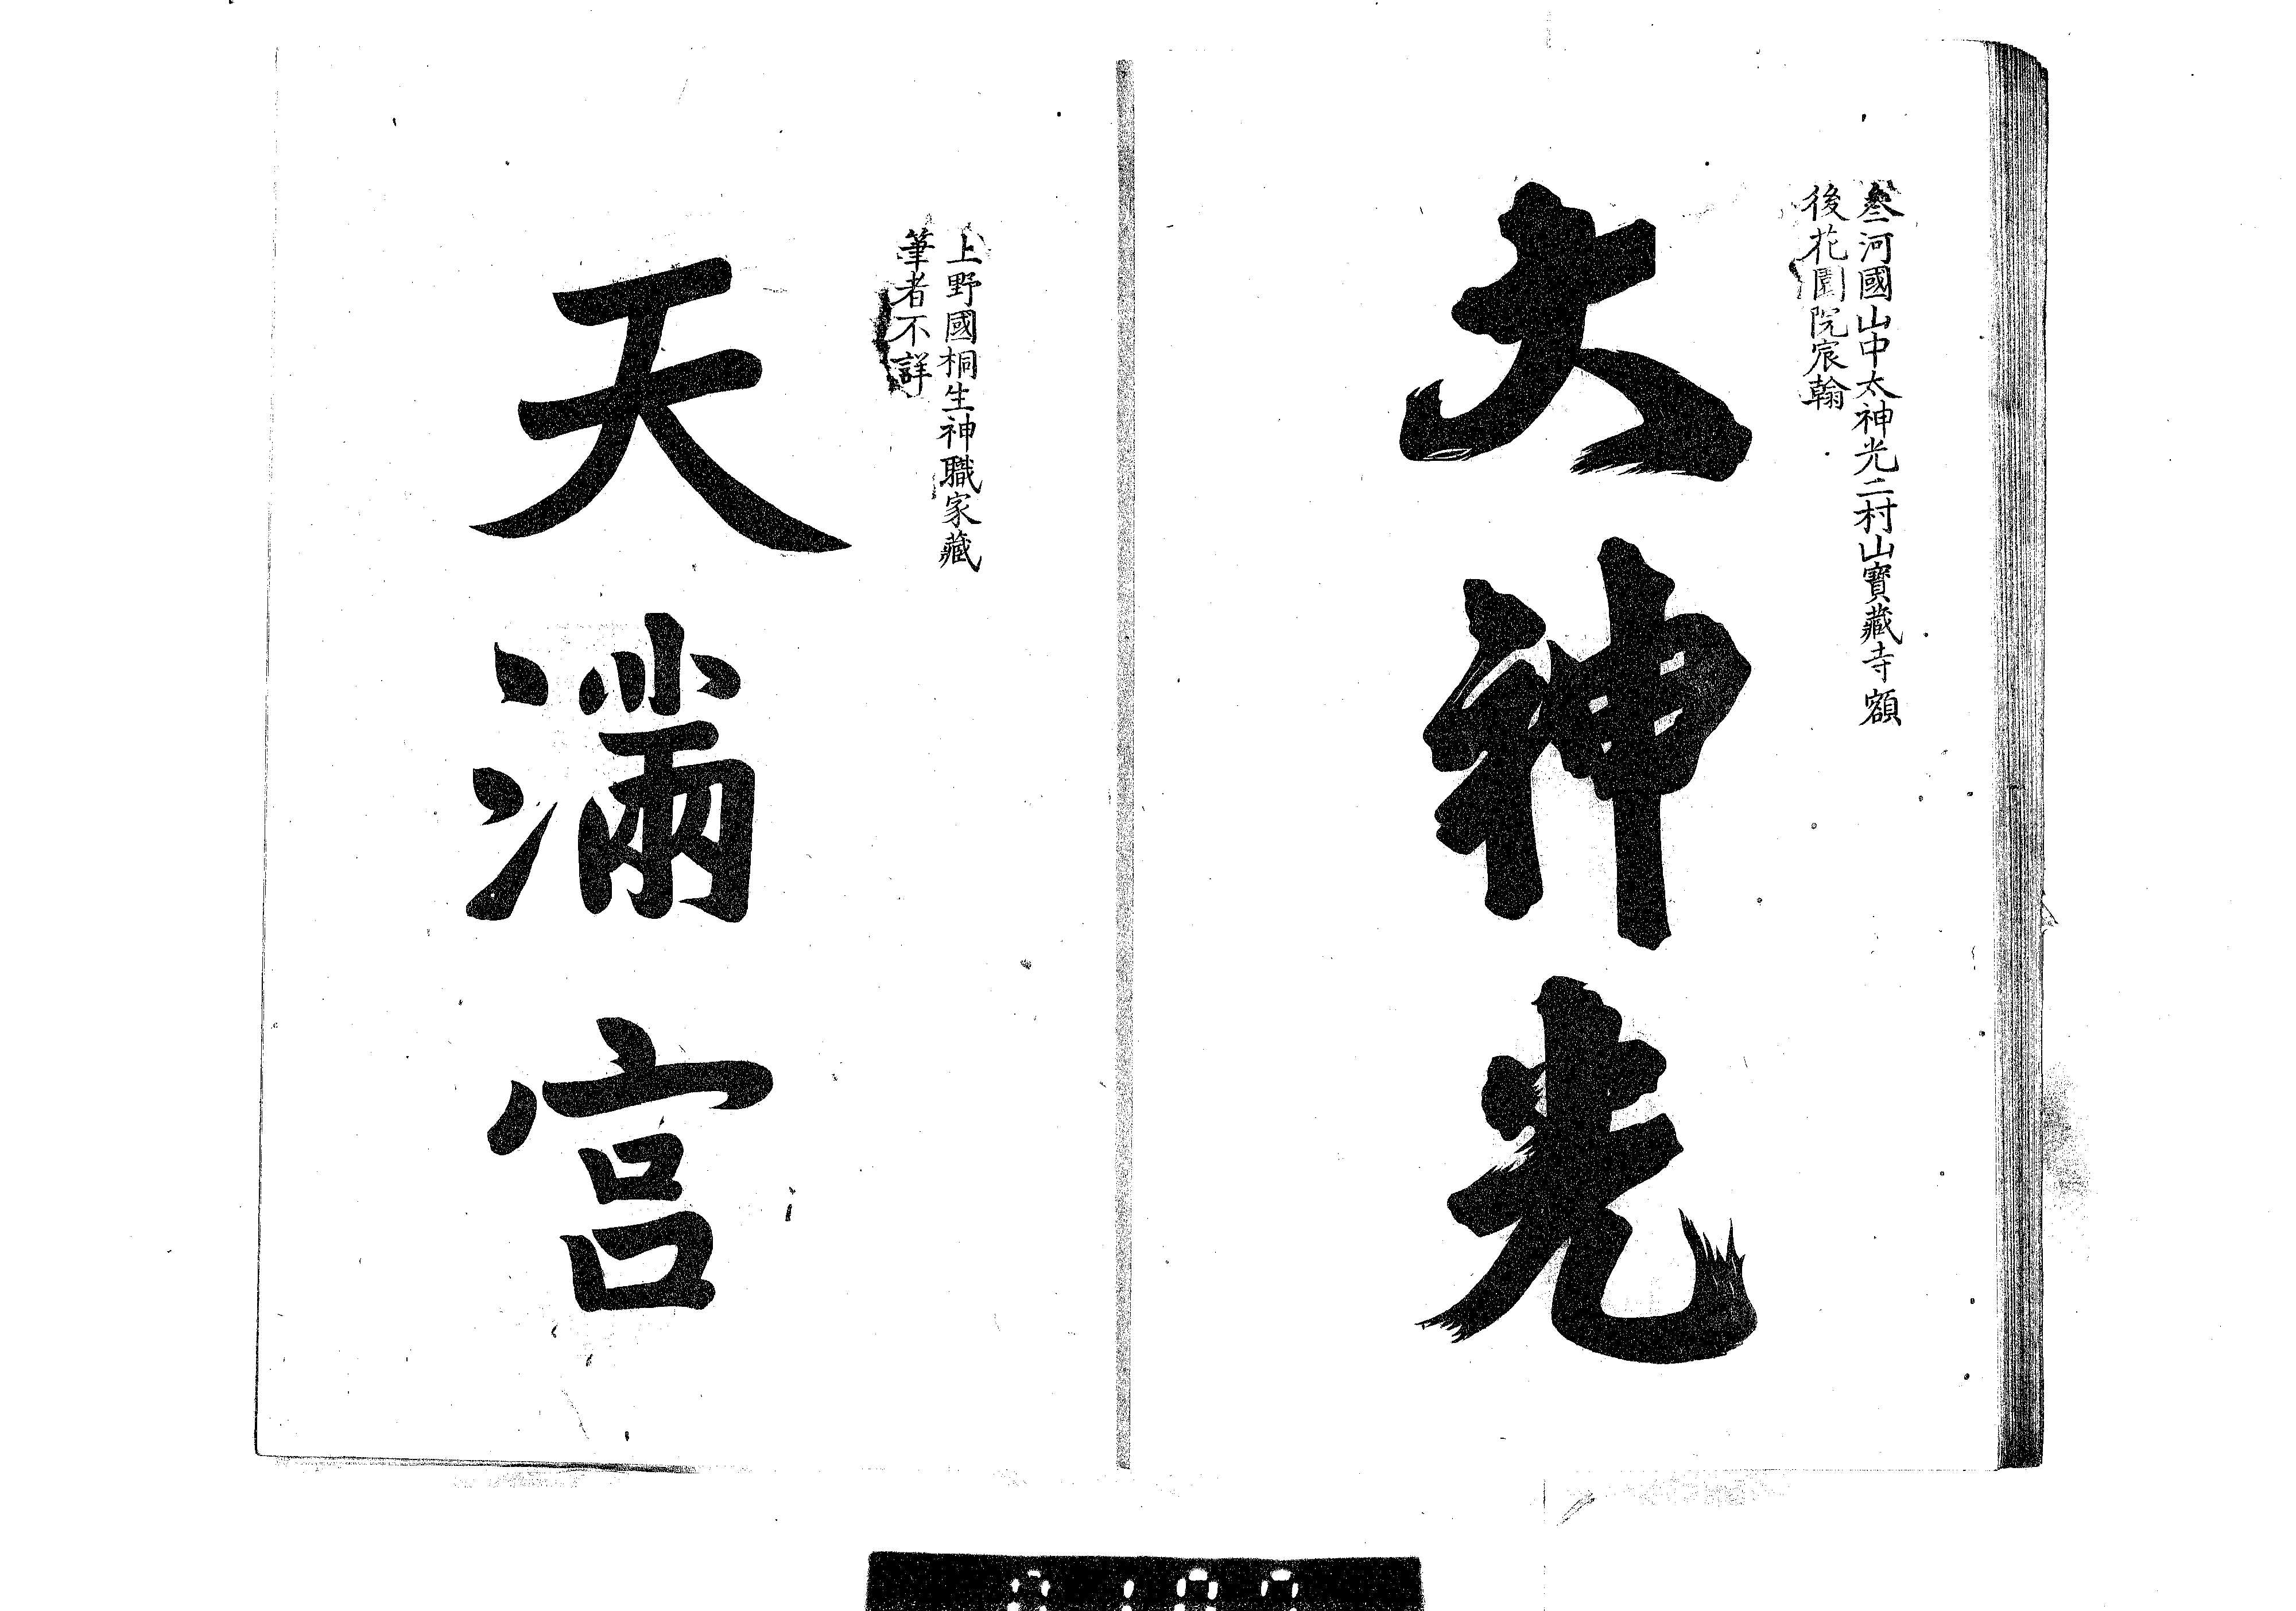 叄河國山中太神光二村山寶藏寺額
後花園院宸翰
大神光
上野國桐生神職家藏
筆者不詳
天滿宮